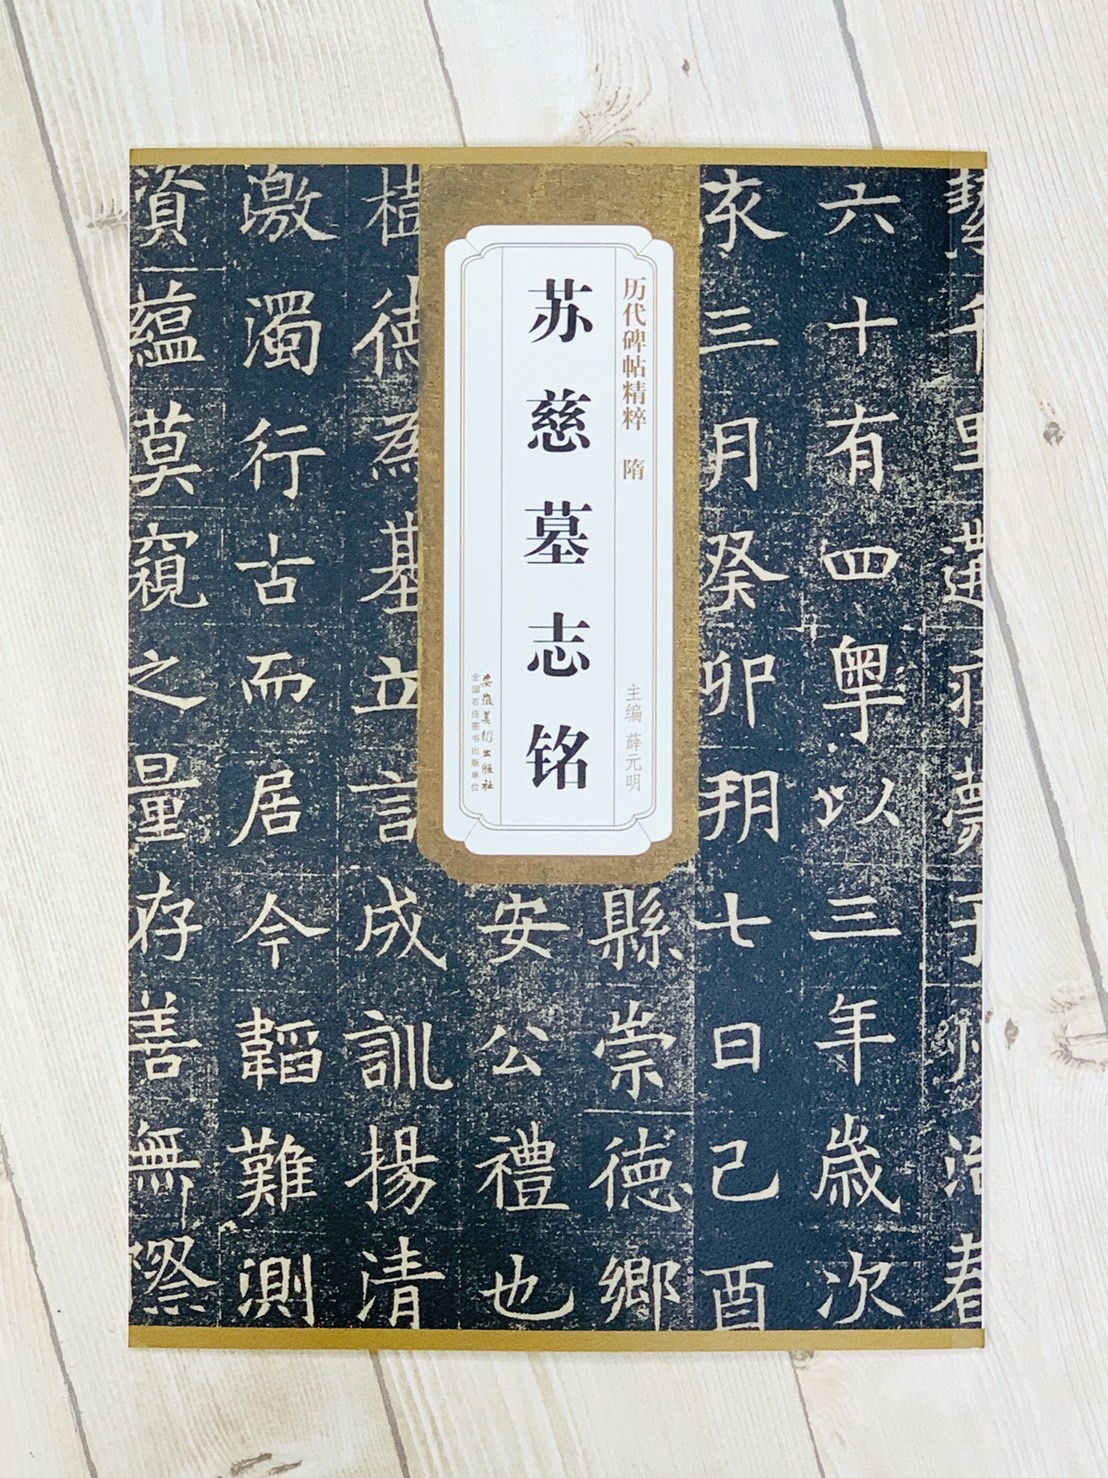 历代碑帖精粹 隋
主编 薛元明
苏慈墓志铭
安徽美术出版社
全国百佳图书出版单位
六十有四粤以三年歲次
亥三月癸卯朔七日己酉
縣崇德鄉
安公禮也
樹德慕立言成訓揚清
激濁行古而居今韜難測
資蘊莫窺之量存善無際